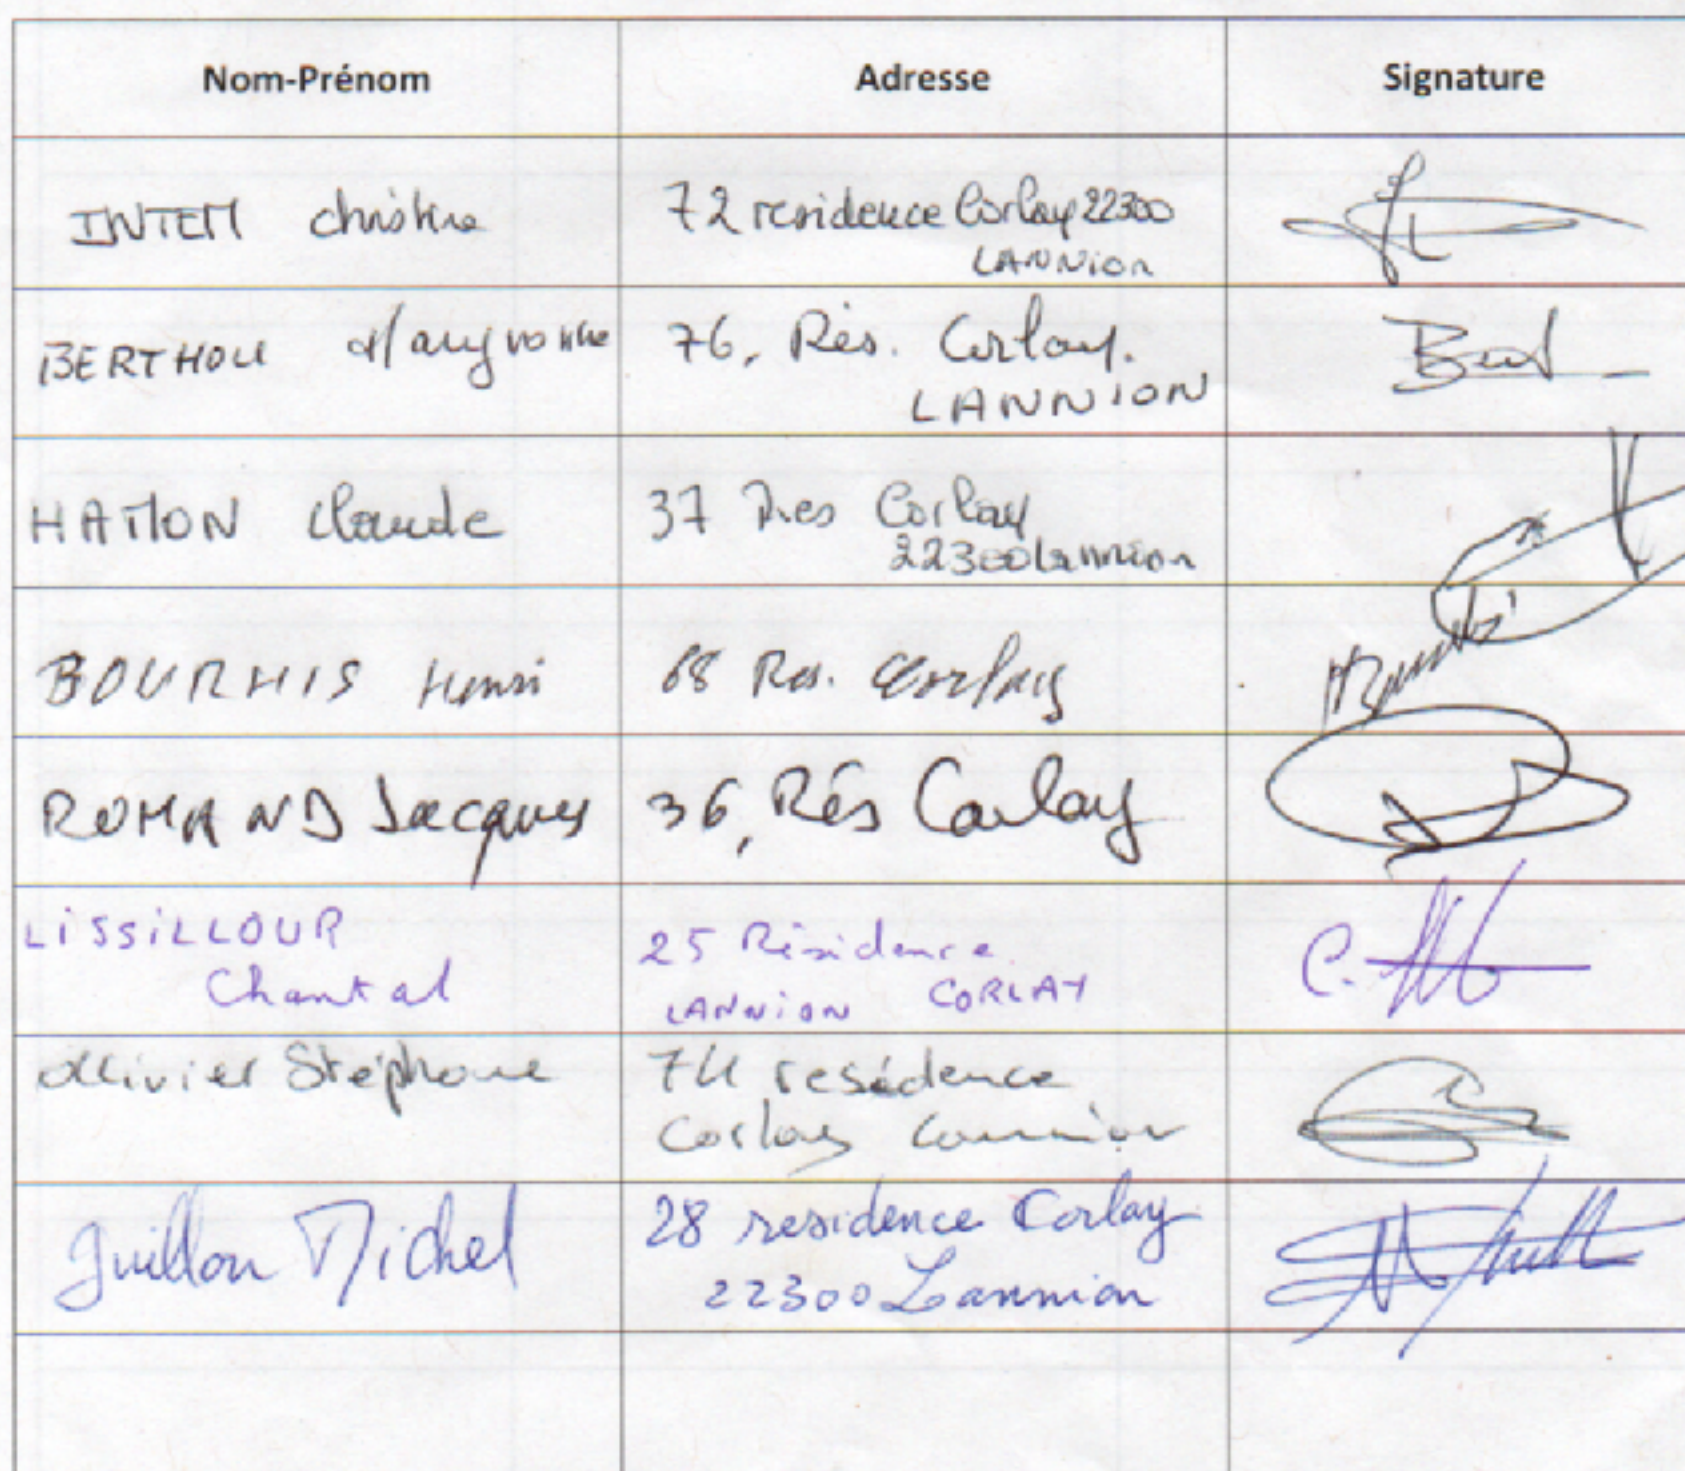 Nom-Prénom Adresse Signature
INTEM christine 72 residence Corlay 22300
LANNION
BERTHOU Maryvonne 76, Rés. Corlay.
LANNION
HAMON Claude 37 Res Corlay
22300 Lannion
BOURHIS Henri 68 Res. Corlay
ROMAND Jacques 36, Rés Corlay
LISSILLOUR 25 Résidence
Chantal LANNION CORLAY
ollivier Stéphane 74 residence
Corlay Lannion
Guillou Michel 28 residence Corlay
22300 Lannion